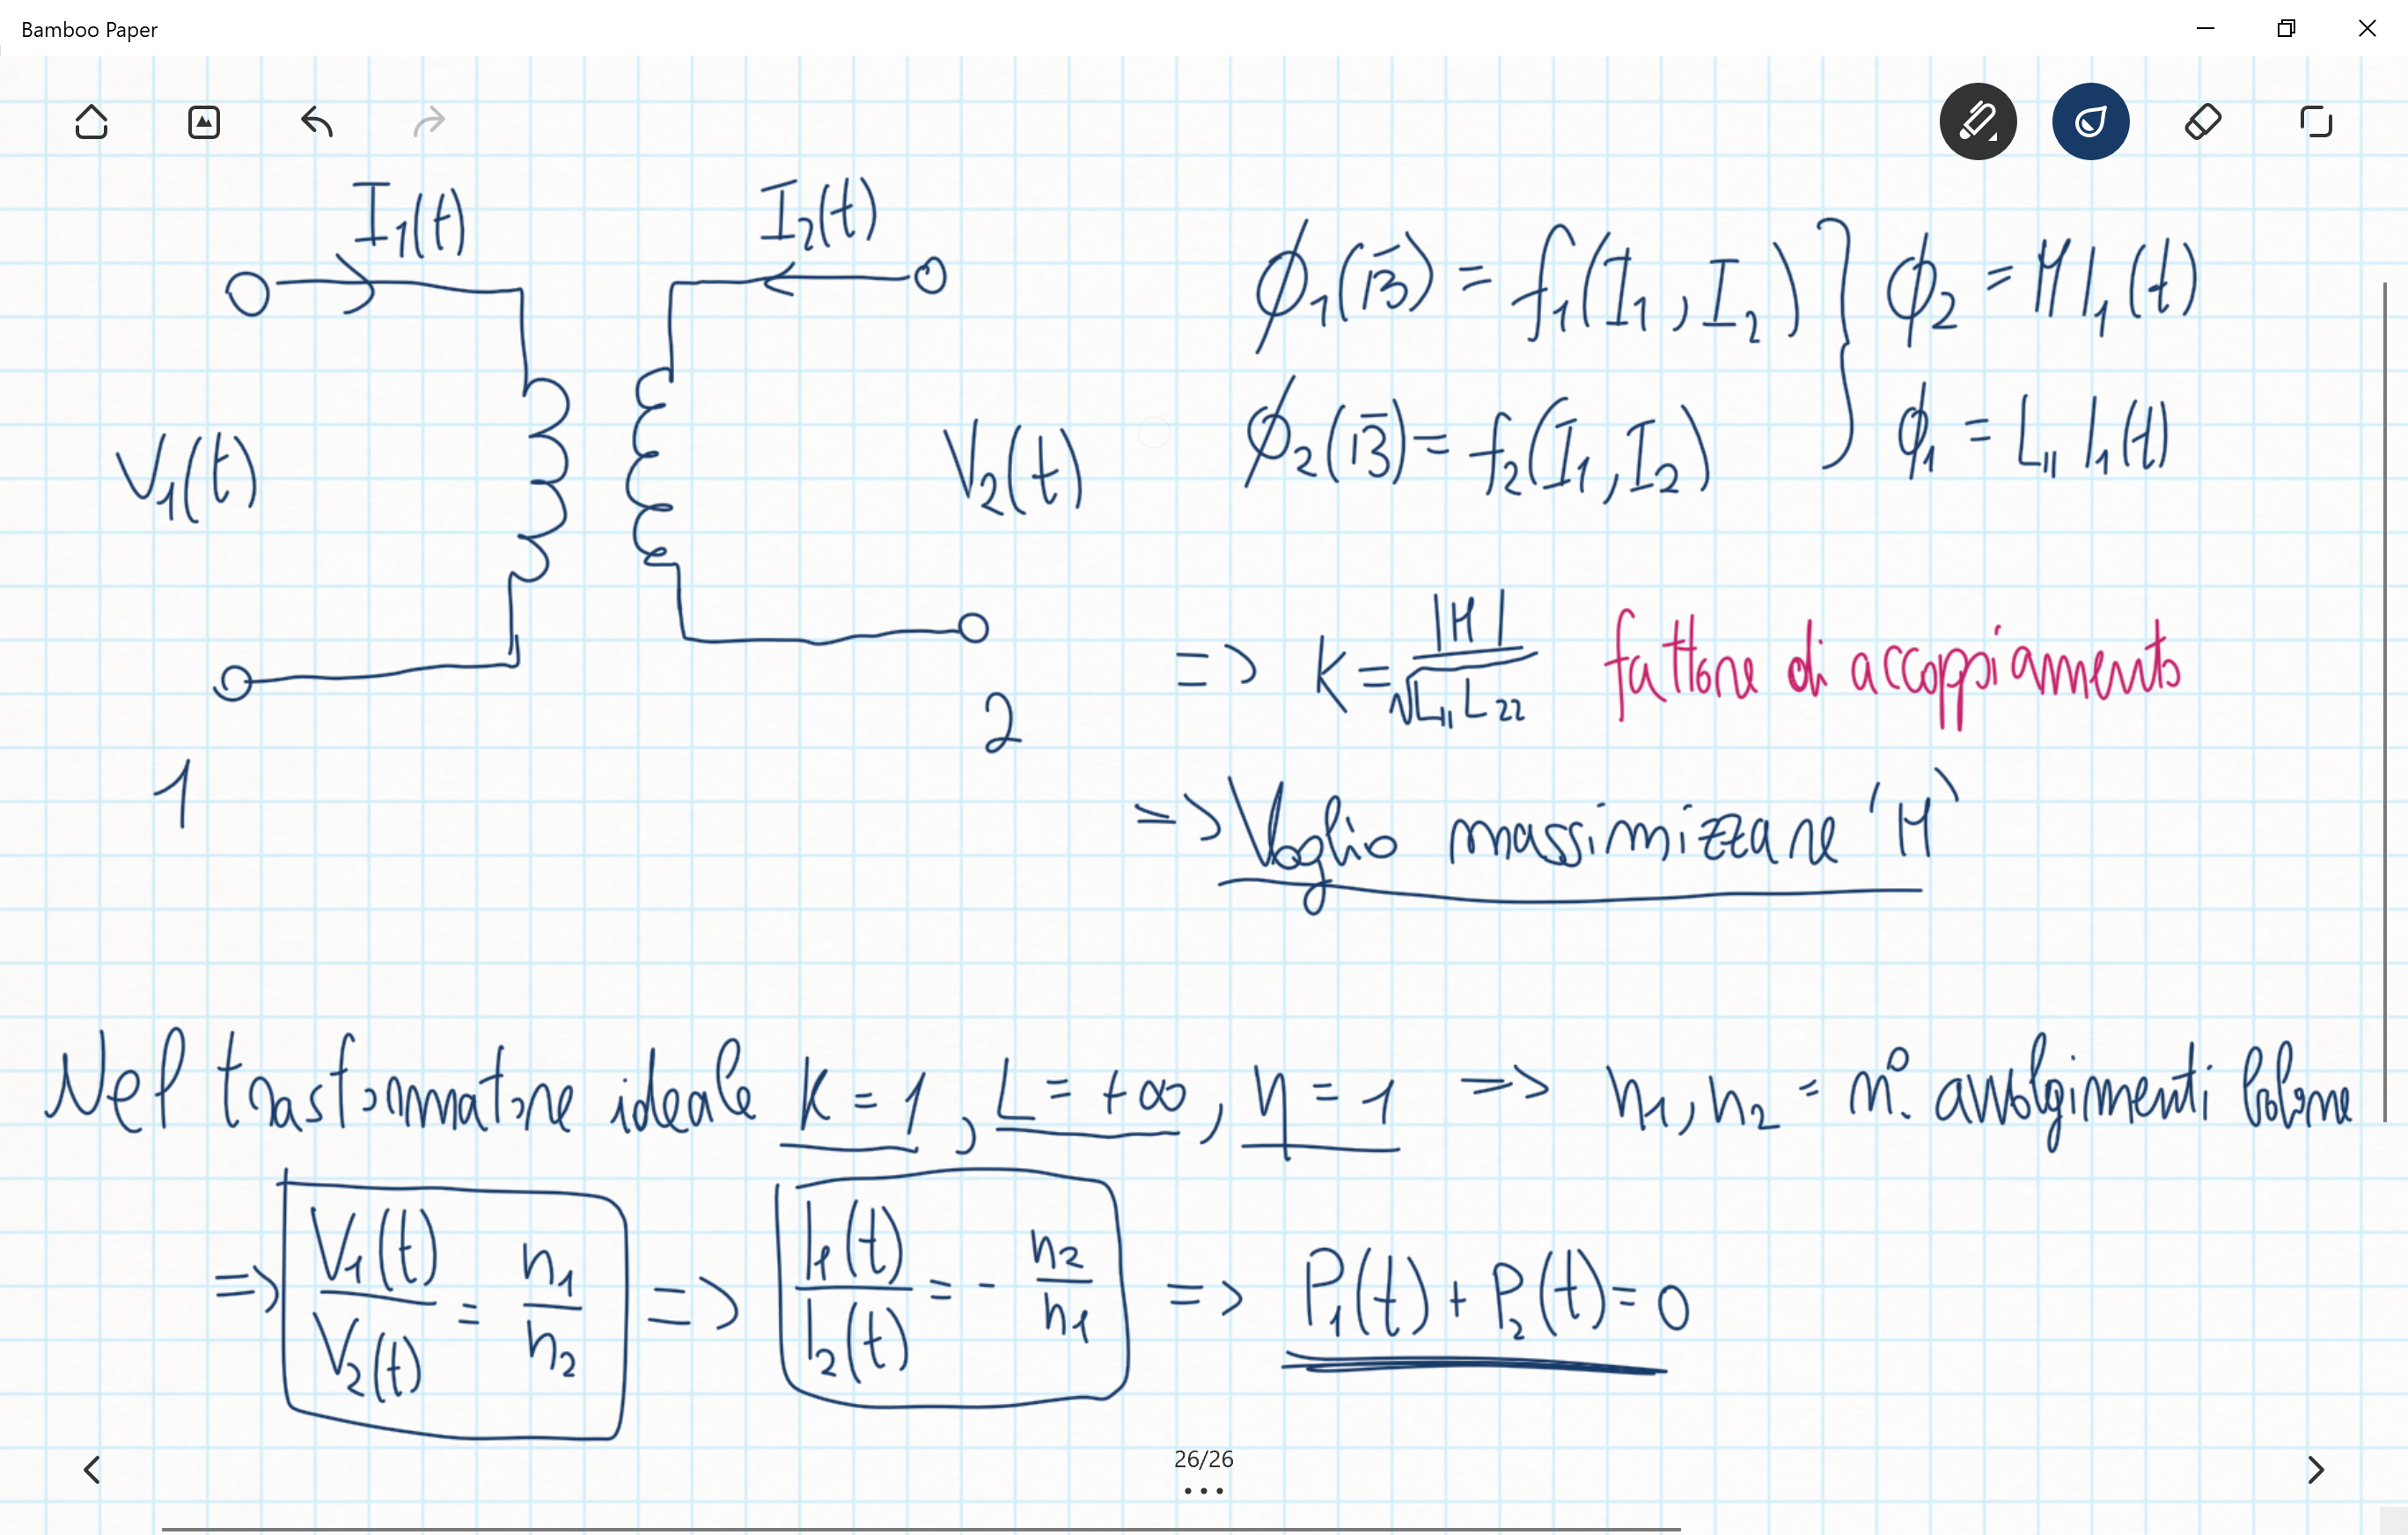 Bamboo Paper
I₁(t) I₂(t)
V₁(t) V₂(t)
1 2
ϕ₁(B̄) = f₁(I₁, I₂) } ϕ₂ = M I₁(t)
ϕ₂(B̄) = f₂(I₁, I₂) ϕ₁ = L₁₁ I₁(t)
=> K = |M| / √L₁₁ L₂₂ fattore di accoppiamento
=> Voglio massimizzare 'M'
Nel trasformatore ideale K = 1, L = +∞, η = 1 => n₁, n₂ = n°. avvolgimenti bobine
=> V₁(t) / V₂(t) = n₁ / n₂ => I₁(t) / I₂(t) = - n₂ / n₁ => P₁(t) + P₂(t) = 0
26/26